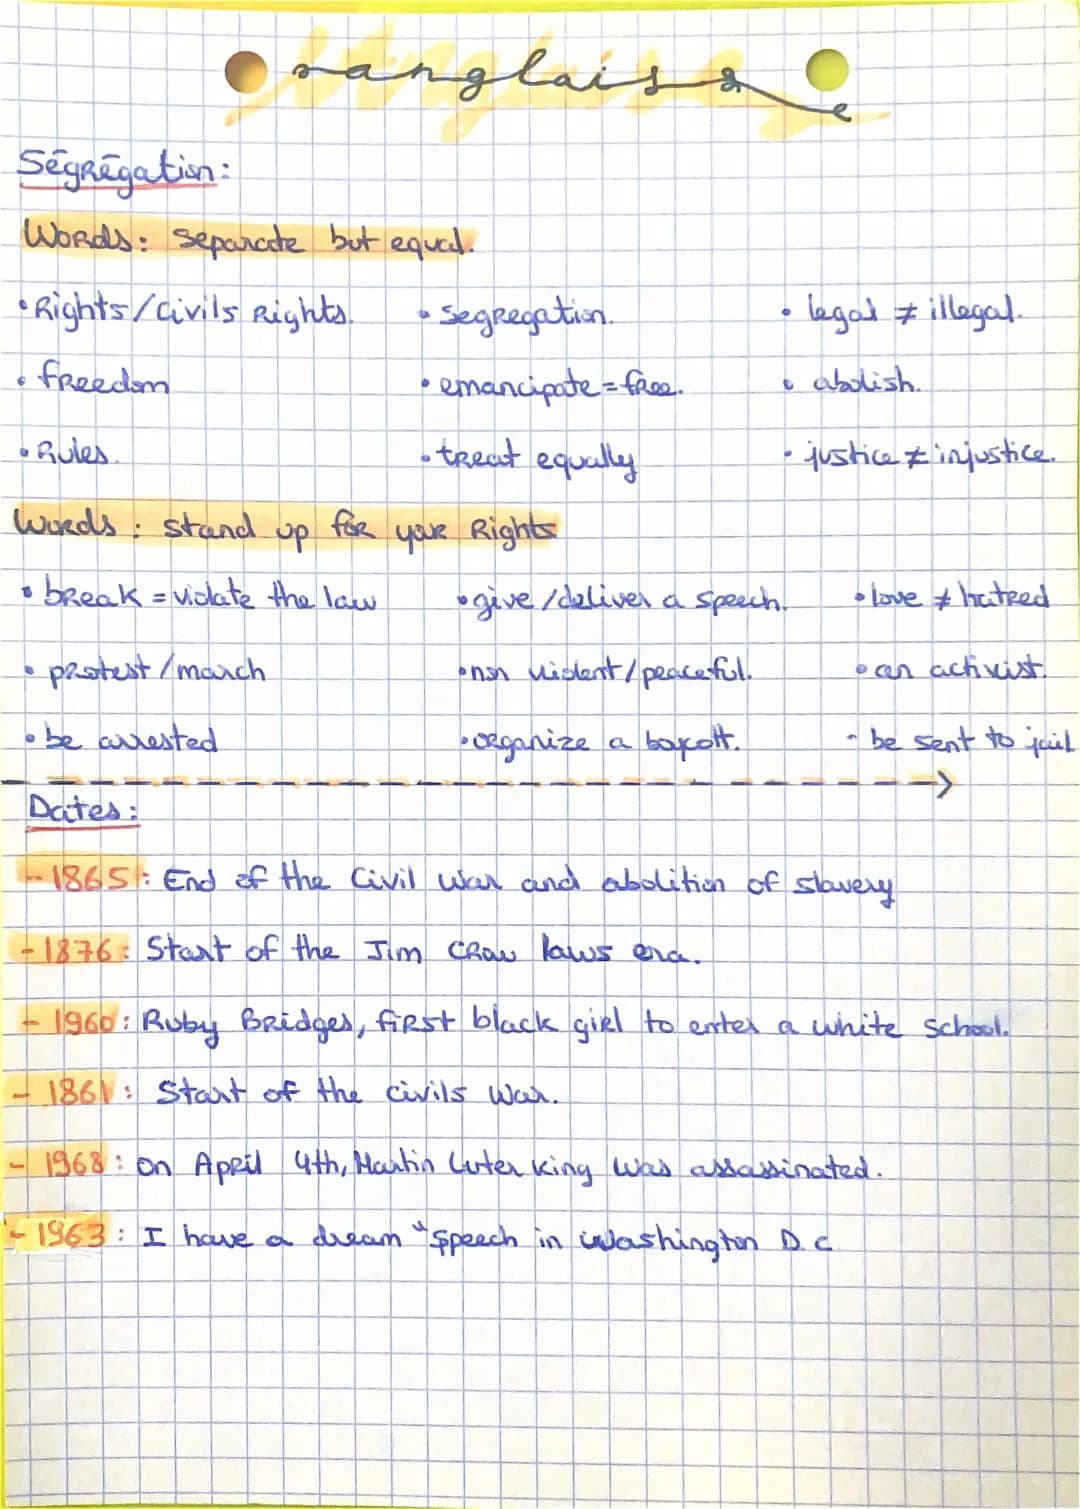 anglais
Ségrégation:
Words: separate but equal.
• Rights/Civils Rights. • segregation. • legal ≠ illegal.
• freedom • emancipate = free. • abolish.
• Rules. • treat equally • justice ≠ injustice.
Words: stand up for your Rights
• break = violate the law • give/deliver a speech. • love ≠ hatred
• protest/march • non violent/peaceful. • an activist.
• be arrested • organize a boycott. - be sent to jail
Dates:
- 1865: End of the Civil War and abolition of slavery
- 1876: Start of the Jim Crow laws era.
- 1960: Ruby Bridges, first black girl to enter a white school.
- 1861: Start of the civils War.
- 1968: on April 4th, Martin Luter King was assassinated.
- 1963: I have a dream "speech in Washington D.C